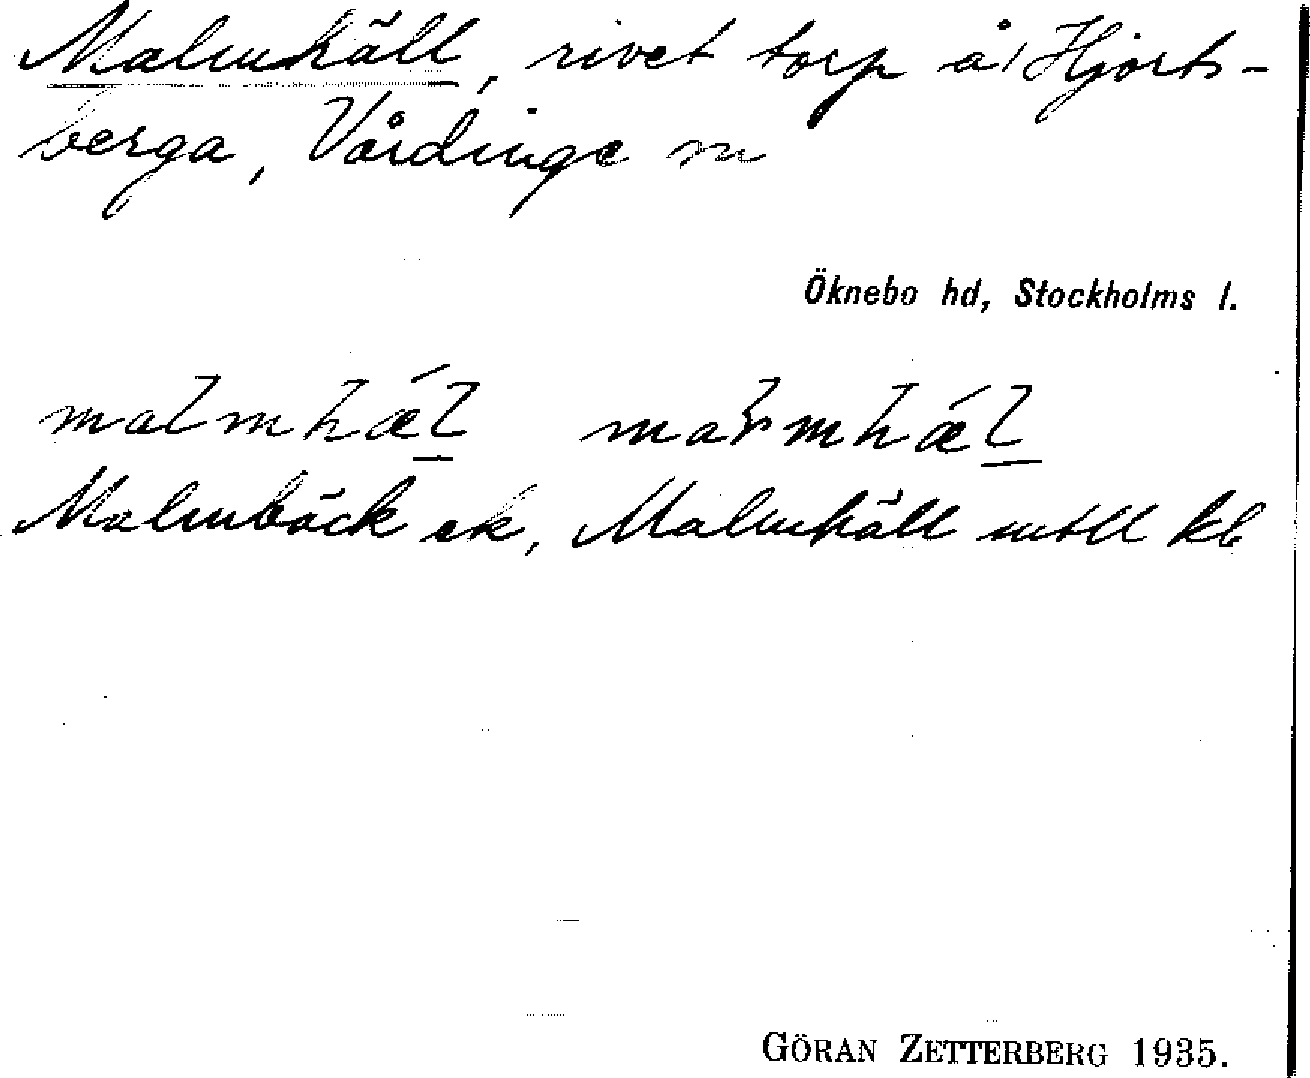 Malmhäll, rivet torp å Hjorts-
berga, Vårdinge sn
Öknebo hd, Stockholms l.
malmhǽl marmhǽl
Malmbäck ek, Malmhäll mtll kb
GÖRAN ZETTERBERG 1935.